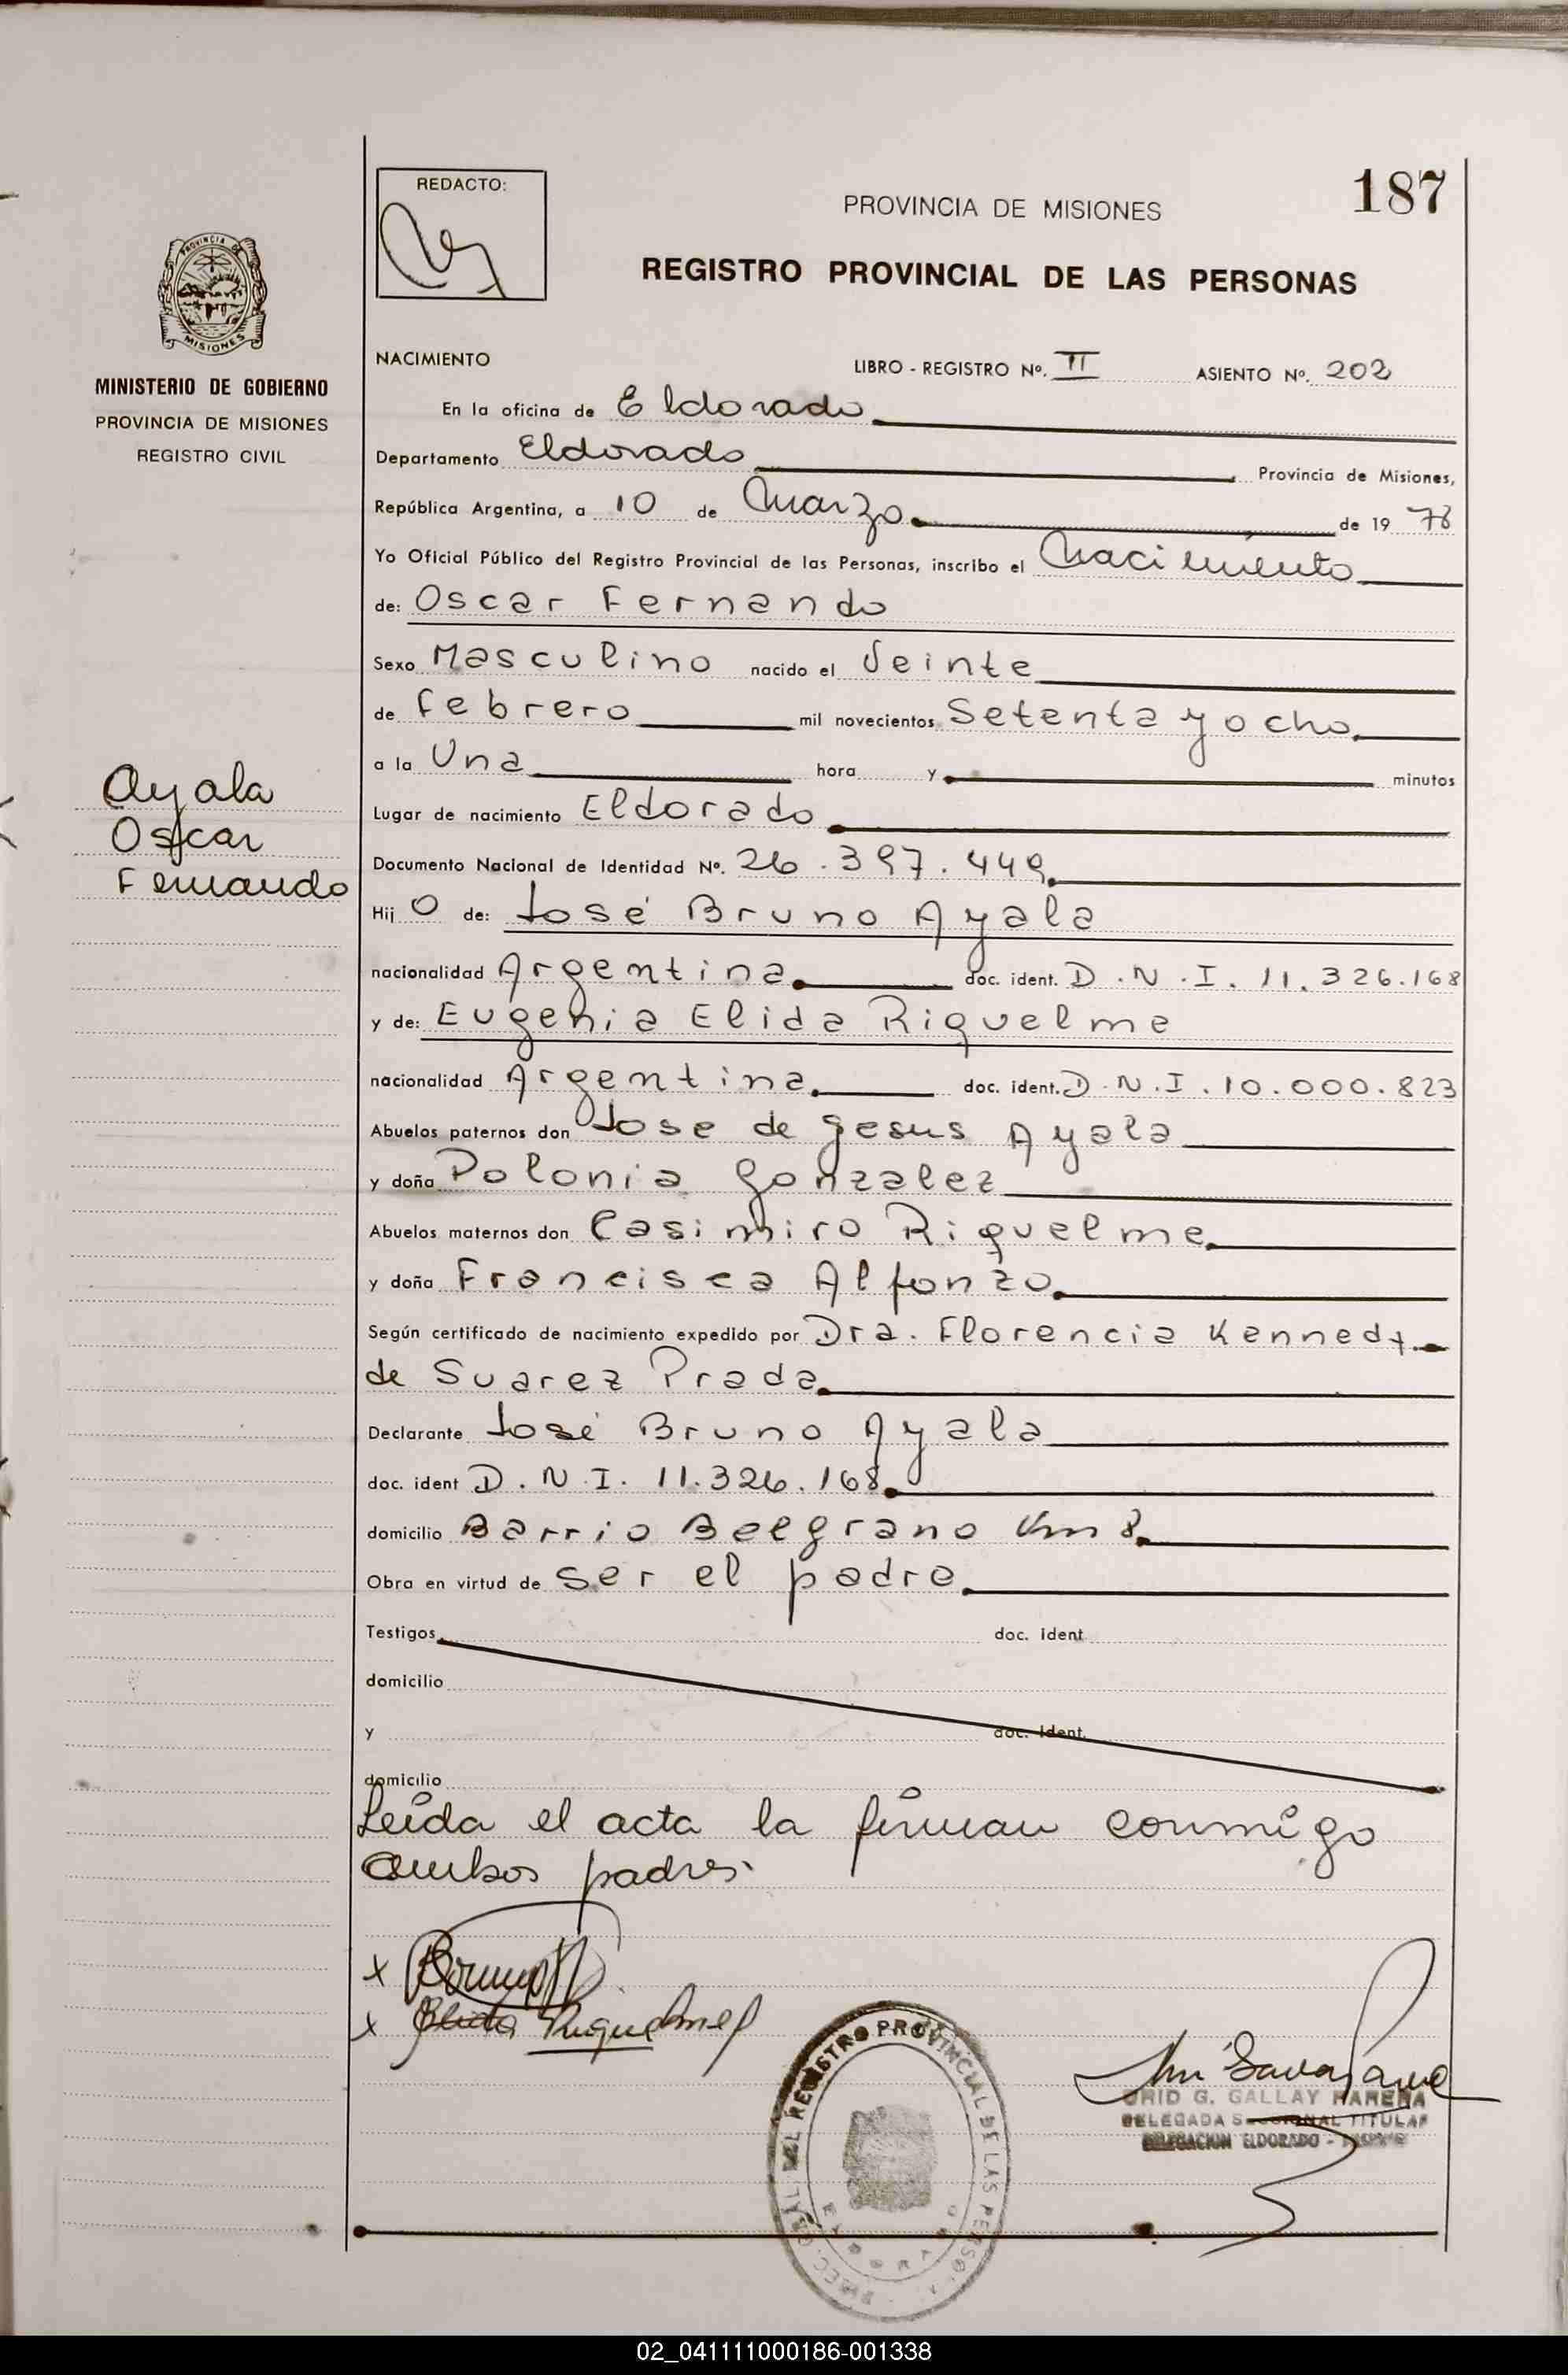 187
REDACTO:
PROVINCIA DE MISIONES
REGISTRO PROVINCIAL DE LAS PERSONAS
PROVINCIA DE
MISIONES
MINISTERIO DE GOBIERNO
PROVINCIA DE MISIONES
REGISTRO CIVIL
NACIMIENTO LIBRO - REGISTRO Nº. II ASIENTO Nº. 202
En la oficina de Eldorado
Departamento Eldorado Provincia de Misiones,
República Argentina, a 10 de Marzo de 19 78
Yo Oficial Público del Registro Provincial de las Personas, inscribo el Nacimiento
de: Oscar Fernando
Sexo Masculino nacido el Veinte
de Febrero mil novecientos Setenta y ocho
a la Una hora y minutos
Ayala
Oscar
Fernando
Lugar de nacimiento Eldorado
Documento Nacional de Identidad Nº. 26.397.449
Hij O de: José Bruno Ayala
nacionalidad Argentina doc. ident. D.N.I. 11.326.168
y de: Eugenia Elida Riquelme
nacionalidad Argentina doc. ident. D.N.I. 10.000.823
Abuelos paternos don Jose de Jesus Ayala
y doña Polonia Gonzalez
Abuelos maternos don Casimiro Riquelme
y doña Francisca Alfonzo
Según certificado de nacimiento expedido por Dra. Florencia Kennedy
de Suarez Prada
Declarante José Bruno Ayala
doc. ident D.N.I. 11.326.168
domicilio Barrio Belgrano Km 8
Obra en virtud de ser el padre
Testigos doc. ident
domicilio
y doc. ident.
domicilio
Leída el acta la firman conmigo
ambos padres.
x Bruno
x Elida Riquelme
DIREC. GRAL. DEL REGISTRO PROVINCIAL DE LAS PERSONAS
G. GALLAY
DELEGADA SECCIONAL TITULAR
DELEGACION ELDORADO - MISIONES
02_041111000186-001338